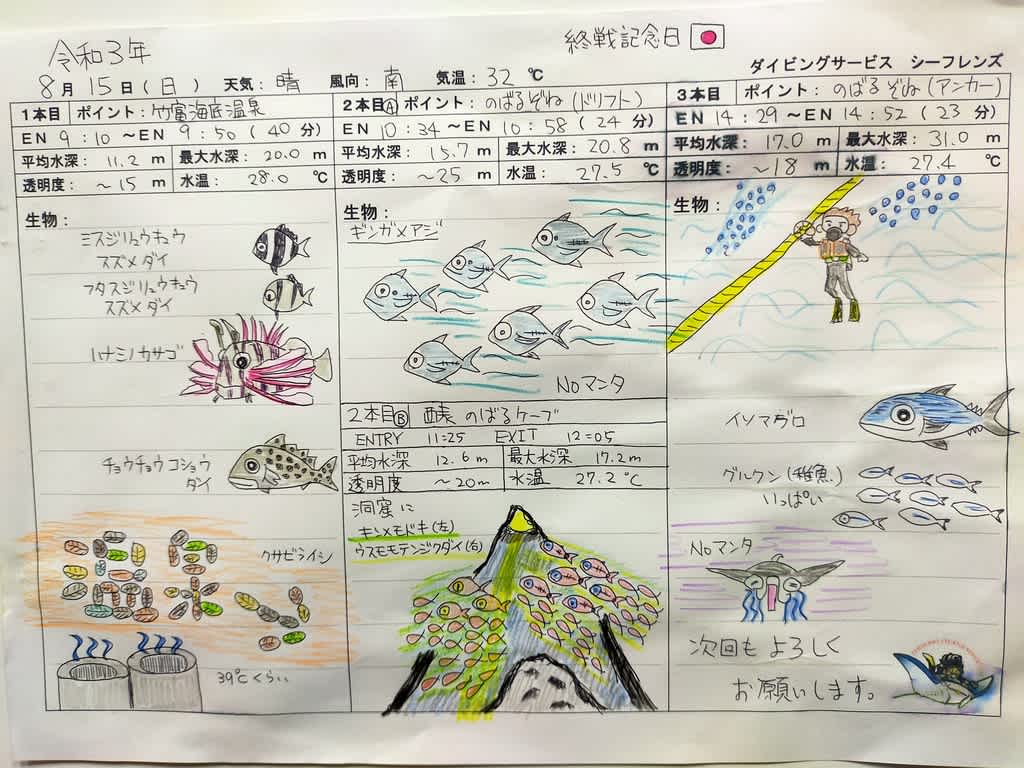 令和3年
終戦記念日
8月15日(日) 天気:晴 風向:南 気温:32℃
ダイビングサービス シーフレンズ
1本目 ポイント:竹富海底温泉
EN 9:10～EN 9:50(40分)
平均水深:11.2m 最大水深:20.0m
透明度:～15m 水温:28.0℃
生物:
ミスジリュウキュウ
スズメダイ
フタスジリュウキュウ
スズメダイ
ハナミノカサゴ
チョウチョウコショウ
ダイ
クサビライシ
温泉
39℃くらい
2本目Ⓐ ポイント:のばるぞね(ドリフト)
EN 10:34～EN 10:58(24分)
平均水深:15.7m 最大水深:20.8m
透明度:～25m 水温:27.5℃
生物:
ギンガメアジ
Noマンタ
2本目Ⓑ のばるケーブ
ENTRY 11:25 EXIT 12:05
平均水深 12.6m 最大水深 17.2m
透明度 ～20m 水温 27.2℃
洞窟に
キンメモドキ(左)
ウスモモテンジクダイ(右)
3本目 ポイント:のばるぞね(アンカー)
EN 14:29～EN 14:52(23分)
平均水深:17.0m 最大水深:31.0m
透明度:～18m 水温:27.4℃
生物:
イソマグロ
グルクン(稚魚)
いっぱい
Noマンタ
次回もよろしく
お願いします。